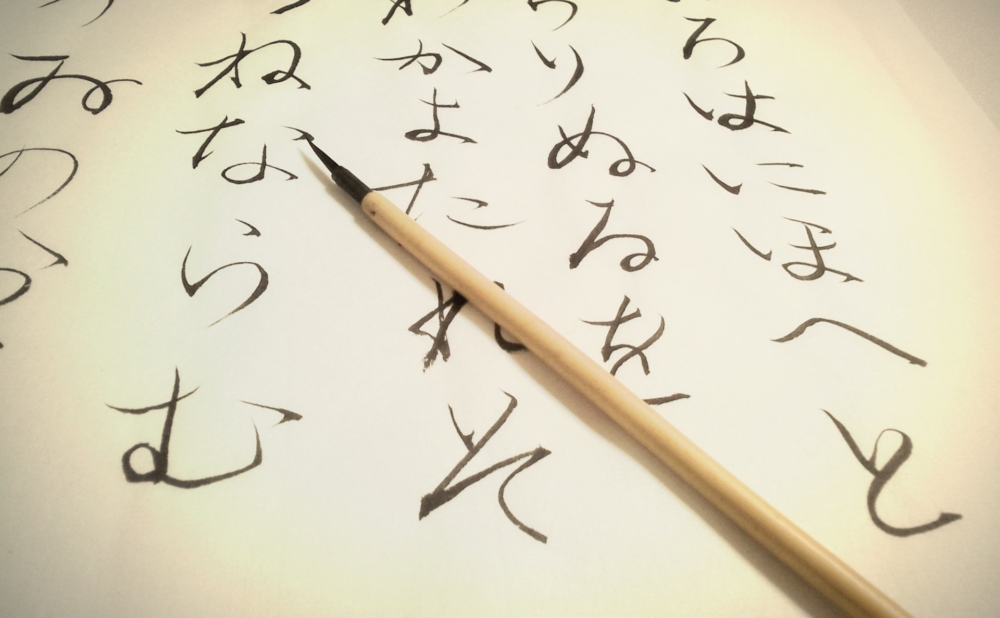 ろはにほへと
ちりぬるを
わかよたれそ
ねならむ
ゐのお